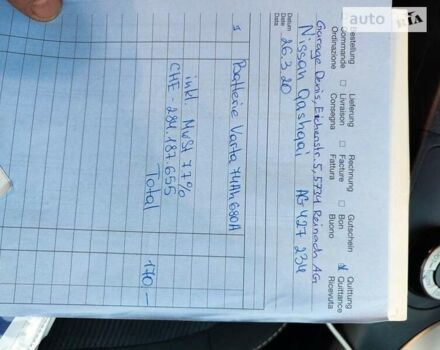 auto RIA
Bestellung Lieferung Rechnung Gutschein Quittung
Commande Livraison Facture Bon Quittance
Ordinazione Consegna Fattura Buono Ricevuta
Garage Denis, Eichenstr. 5, 5734 Reinach AG
Nissan Qashqai AG 427 234
Datum
Date
Data
26.3.20
1 Batterie Varta 74Ah 680A
inkl. MwSt 7.7%
CHE-284.187.655
Total 170.-